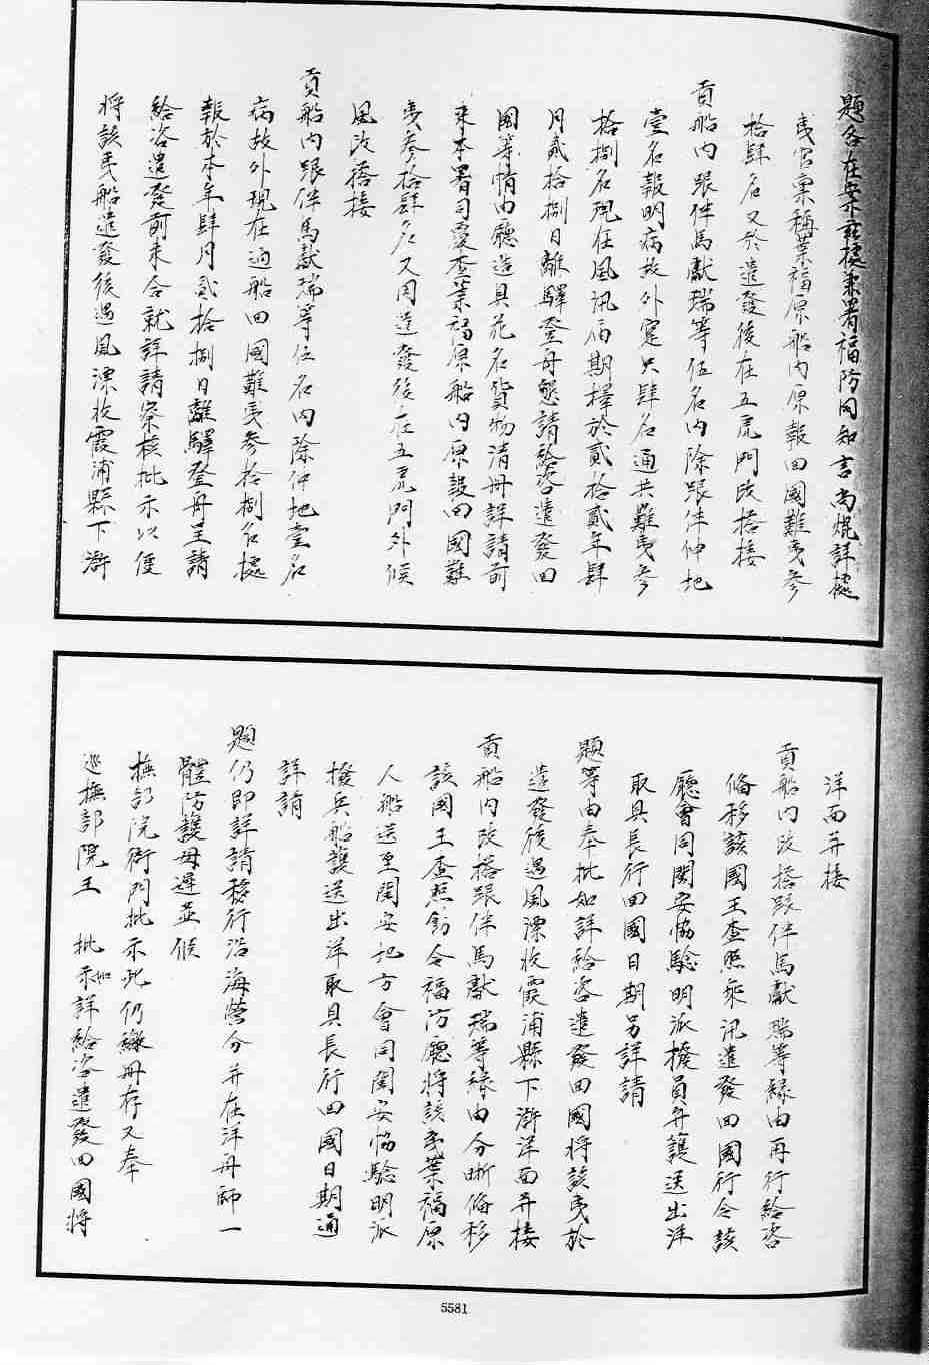 題各在案玆據兼署福防同知言尚焜詳據
夷官稟稱葉福原船內原報回國難夷參
拾肆名又於遣發後在五虎門改搭接
貢船內跟伴馬獻瑞等伍名內除跟伴仲地
壹名報明病故外寔只肆名通共難夷參
拾捌名現任風汛屆期擇於貳拾貳年肆
月貳拾捌日離驛登舟懇請給咨遣發回
國等情由廳造具花名貨物清冊詳請前
來本署司覆查葉福原船內原報回國難
夷參拾肆名又同遣發後在五虎門外候
風改搭接
貢船內跟伴馬獻瑞等伍名內除仲地壹名
病故外現在逈船回國難夷參拾捌名據
報於本年肆月貳拾捌日離驛登舟呈請
給咨遣發前來合就詳請察核批示以便
將該夷船遣發後遇風漂收霞浦縣下滸
洋面并接
貢船內改搭跟伴馬獻瑞等緣由再行給咨
俻移該國王查照乘汛遣發回國行令該
廳會同閩安協驗明派撥員弁護送出洋
取具長行回國日期另詳請
題等由奉批如詳給咨遣發回國將該夷於
遣發後遇風漂收霞浦縣下滸洋面并接
貢船內改搭跟伴馬獻瑞等緣由分晰俻移
該國王查照飭令福防廳將該夷葉福原
人船送至閩安地方會同閩安協驗明派
撥兵船護送出洋取具長行回國日期通
詳請
題仍即詳請移行沿海營分并在洋舟師一
體防護毋遲並候
撫部院衙門批示此仍繳冊存又奉
巡撫部院王 批示如詳給咨遣發回國將
5581